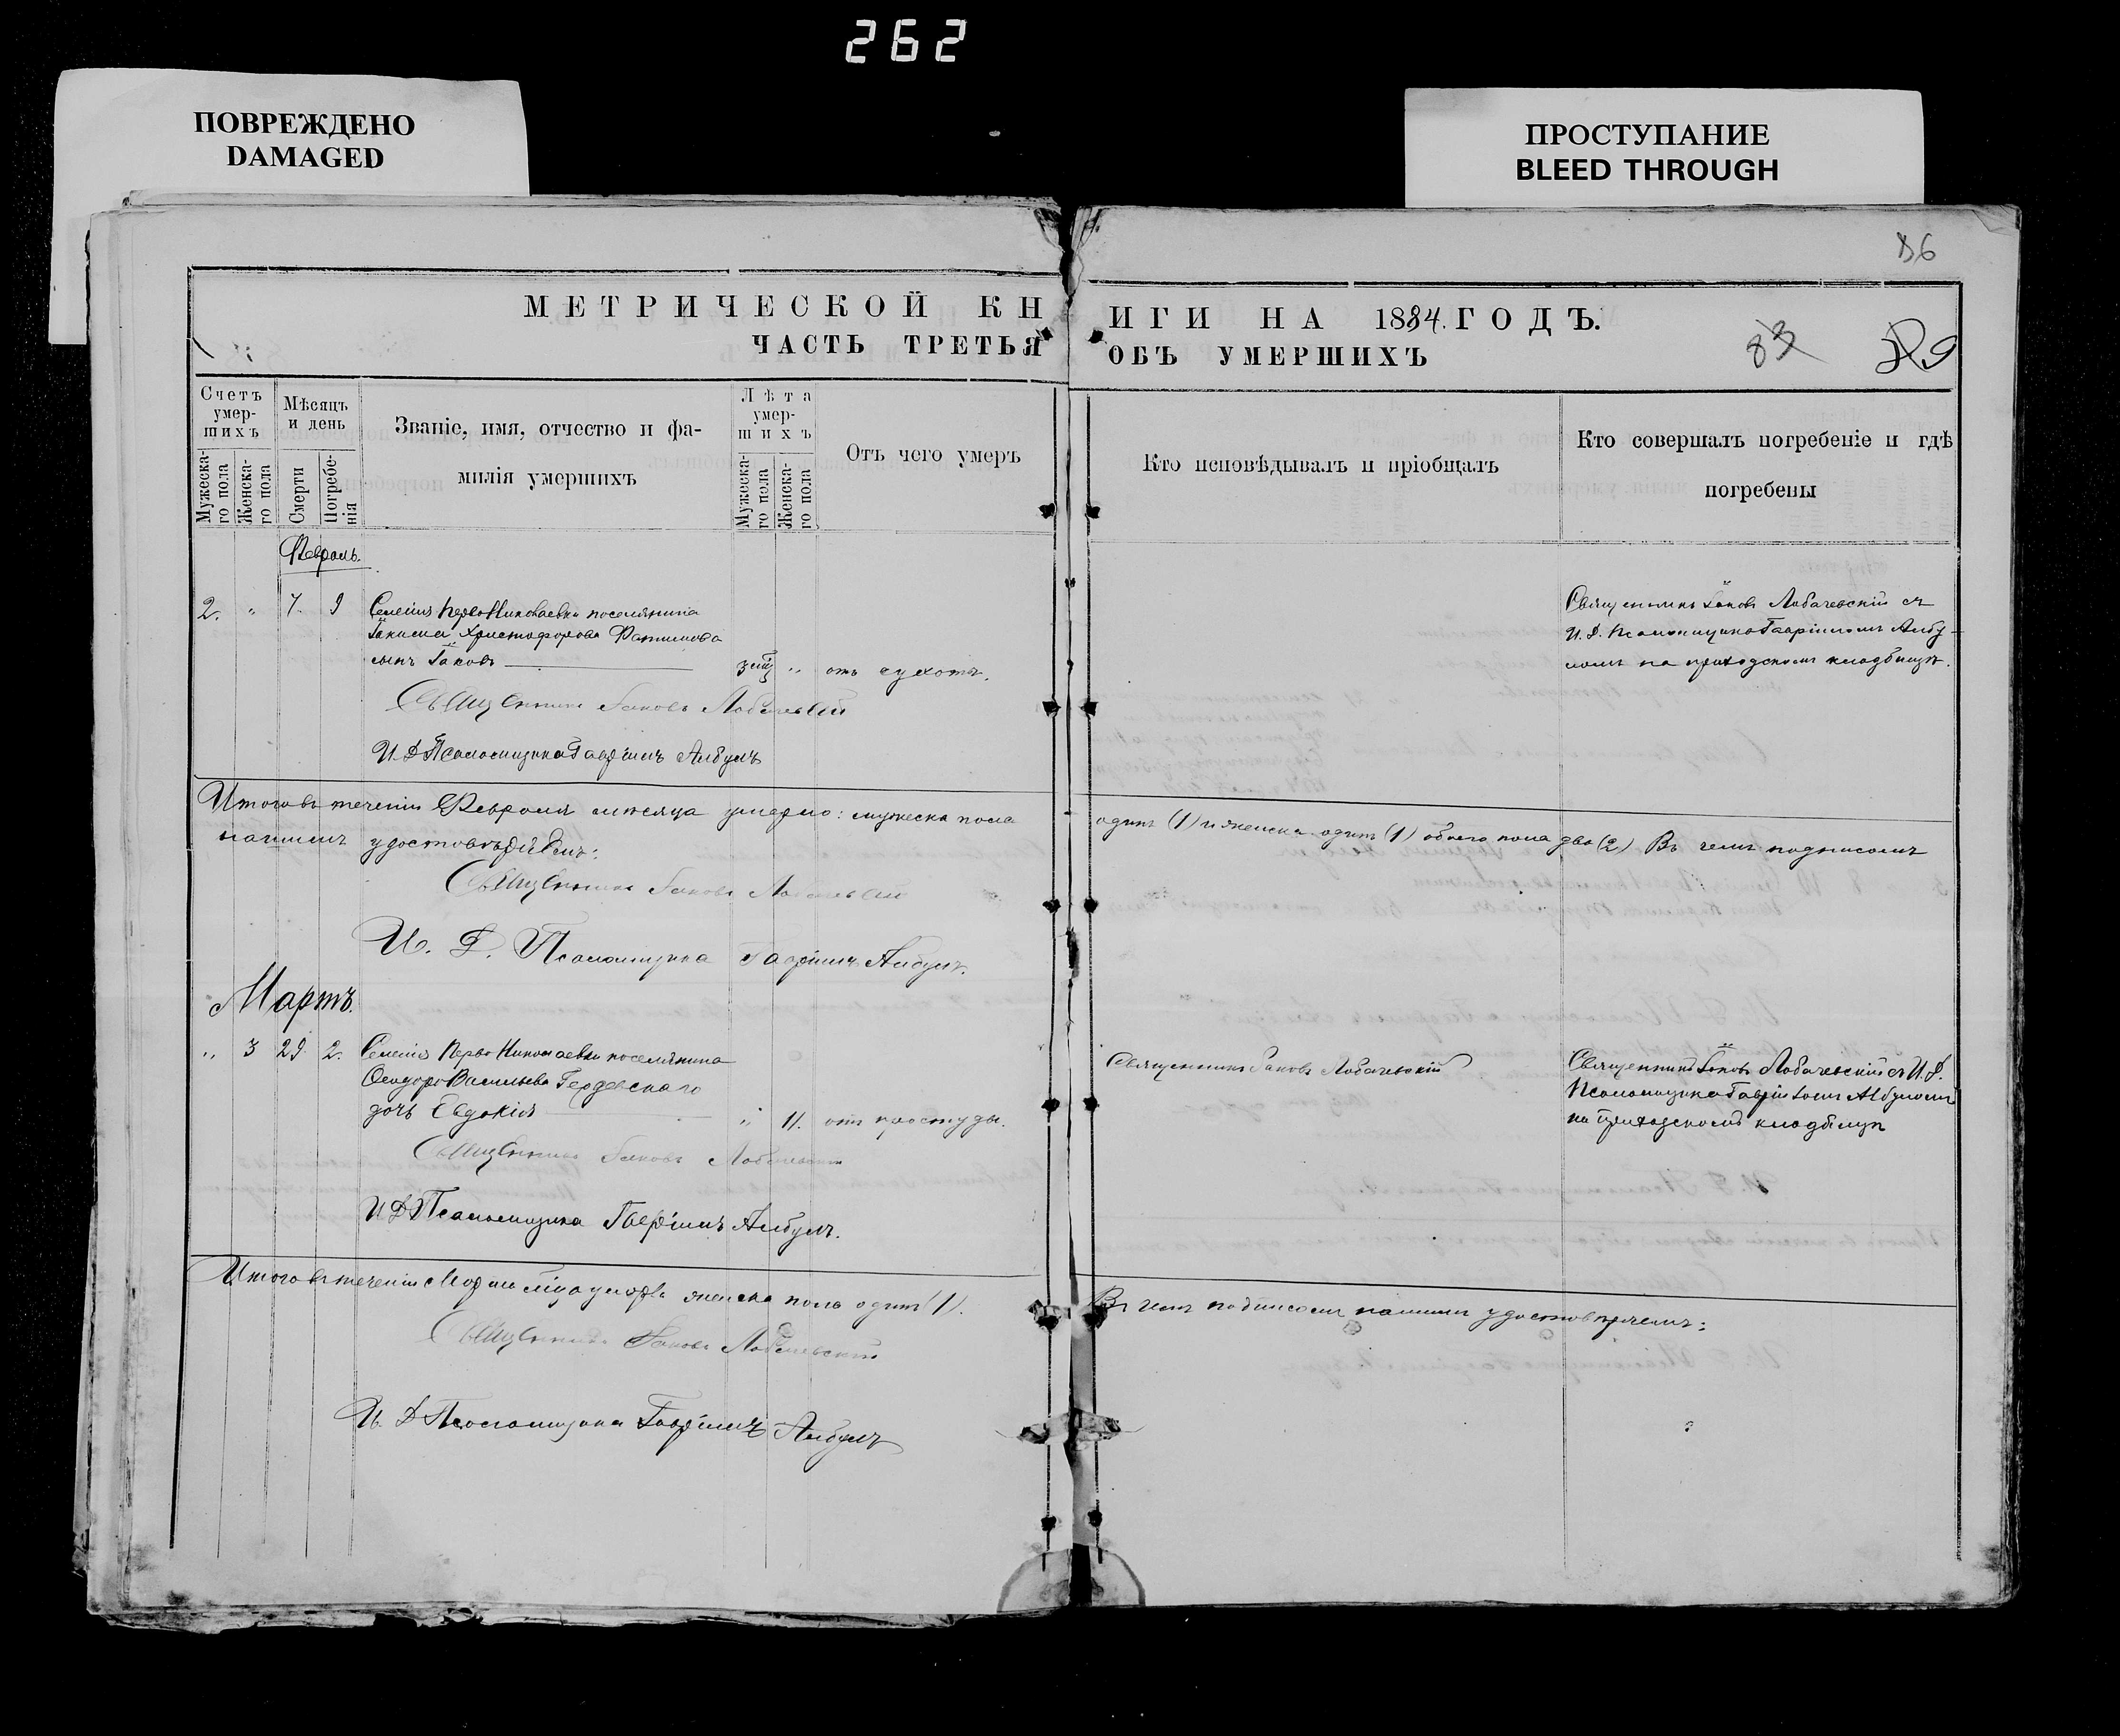 262
ПОВРЕЖДЕНО
DAMAGED
ПРОСТУПАНИЕ
BLEED THROUGH
86
МЕТРИЧЕСКОЙ КНИГИ НА 1884. ГОДЪ.
ЧАСТЬ ТРЕТЬЯ ОБЪ УМЕРШИХЪ
83
Счетъ умер-
шихъ
Мужеска-
го пола
Женска-
го пола
Мѣсяцъ
и день
Смерти
Погребе-
нія
Званіе, имя, отчество и фа-
милія умершихъ
Лѣта
умер-
шихъ
Мужеска-
го пола
Женска-
го пола
Отъ чего умеръ
Кто исповѣдывалъ и пріобщалъ
Кто совершалъ погребеніе и гдѣ
погребены
Февраль.
2. " 7. 9 Селенія Перво Николаевки поселянина
Христофорова
сынъ Іаковъ " отъ сухотъ.
Священникъ Іаковъ Лобачевскій съ
И. Д. Псаломщика Гавріиломъ Албу-
ломъ на приходскомъ кладбищѣ.
Священникъ Іаковъ Лобачевскій
И. Д. Псаломщика Гавріилъ Албулъ
Итого въ теченіи Февраля мѣсяца умерло: мужеска пола
одинъ (1) и женска одинъ (1) обоего пола два (2) Въ чемъ подписомъ
нашимъ удостовѣряемъ:
Священникъ Іаковъ Лобачевскій
И. Д. Псаломщика Гавріилъ Албулъ.
Мартъ.
" 3 29 2. Селенія Перво Николаевки поселянина
Ѳеодора Васильева
дочь Евдокія " 11. отъ простуды.
Священникъ Іаковъ Лобачевскій
Священникъ Іаковъ Лобачевскій съ И. Д.
Псаломщика Гавріиломъ Албуломъ
на приходскомъ кладбищѣ
Священникъ Іаковъ Лобачевскій
И Д Псаломщика Гавріилъ Албулъ.
Итого въ теченіи Марта мѣсяца умерла женска пола одинъ (1).
Въ чемъ подписомъ нашимъ удостовѣряемъ:
Священникъ Іаковъ Лобачевскій
И. Д Псаломщика Гавріилъ Албулъ